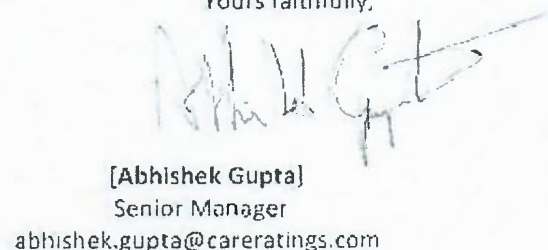 Yours faithfully,
[Abhishek Gupta]
Senior Manager
abhishek.gupta@careratings.com